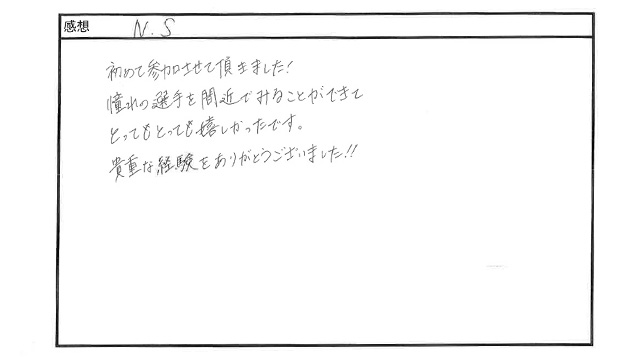 感想 N.S
初めて参加させて頂きました!
憧れの選手を間近でみることができて
とってもとっても嬉しかったです。
貴重な経験をありがとうございました!!